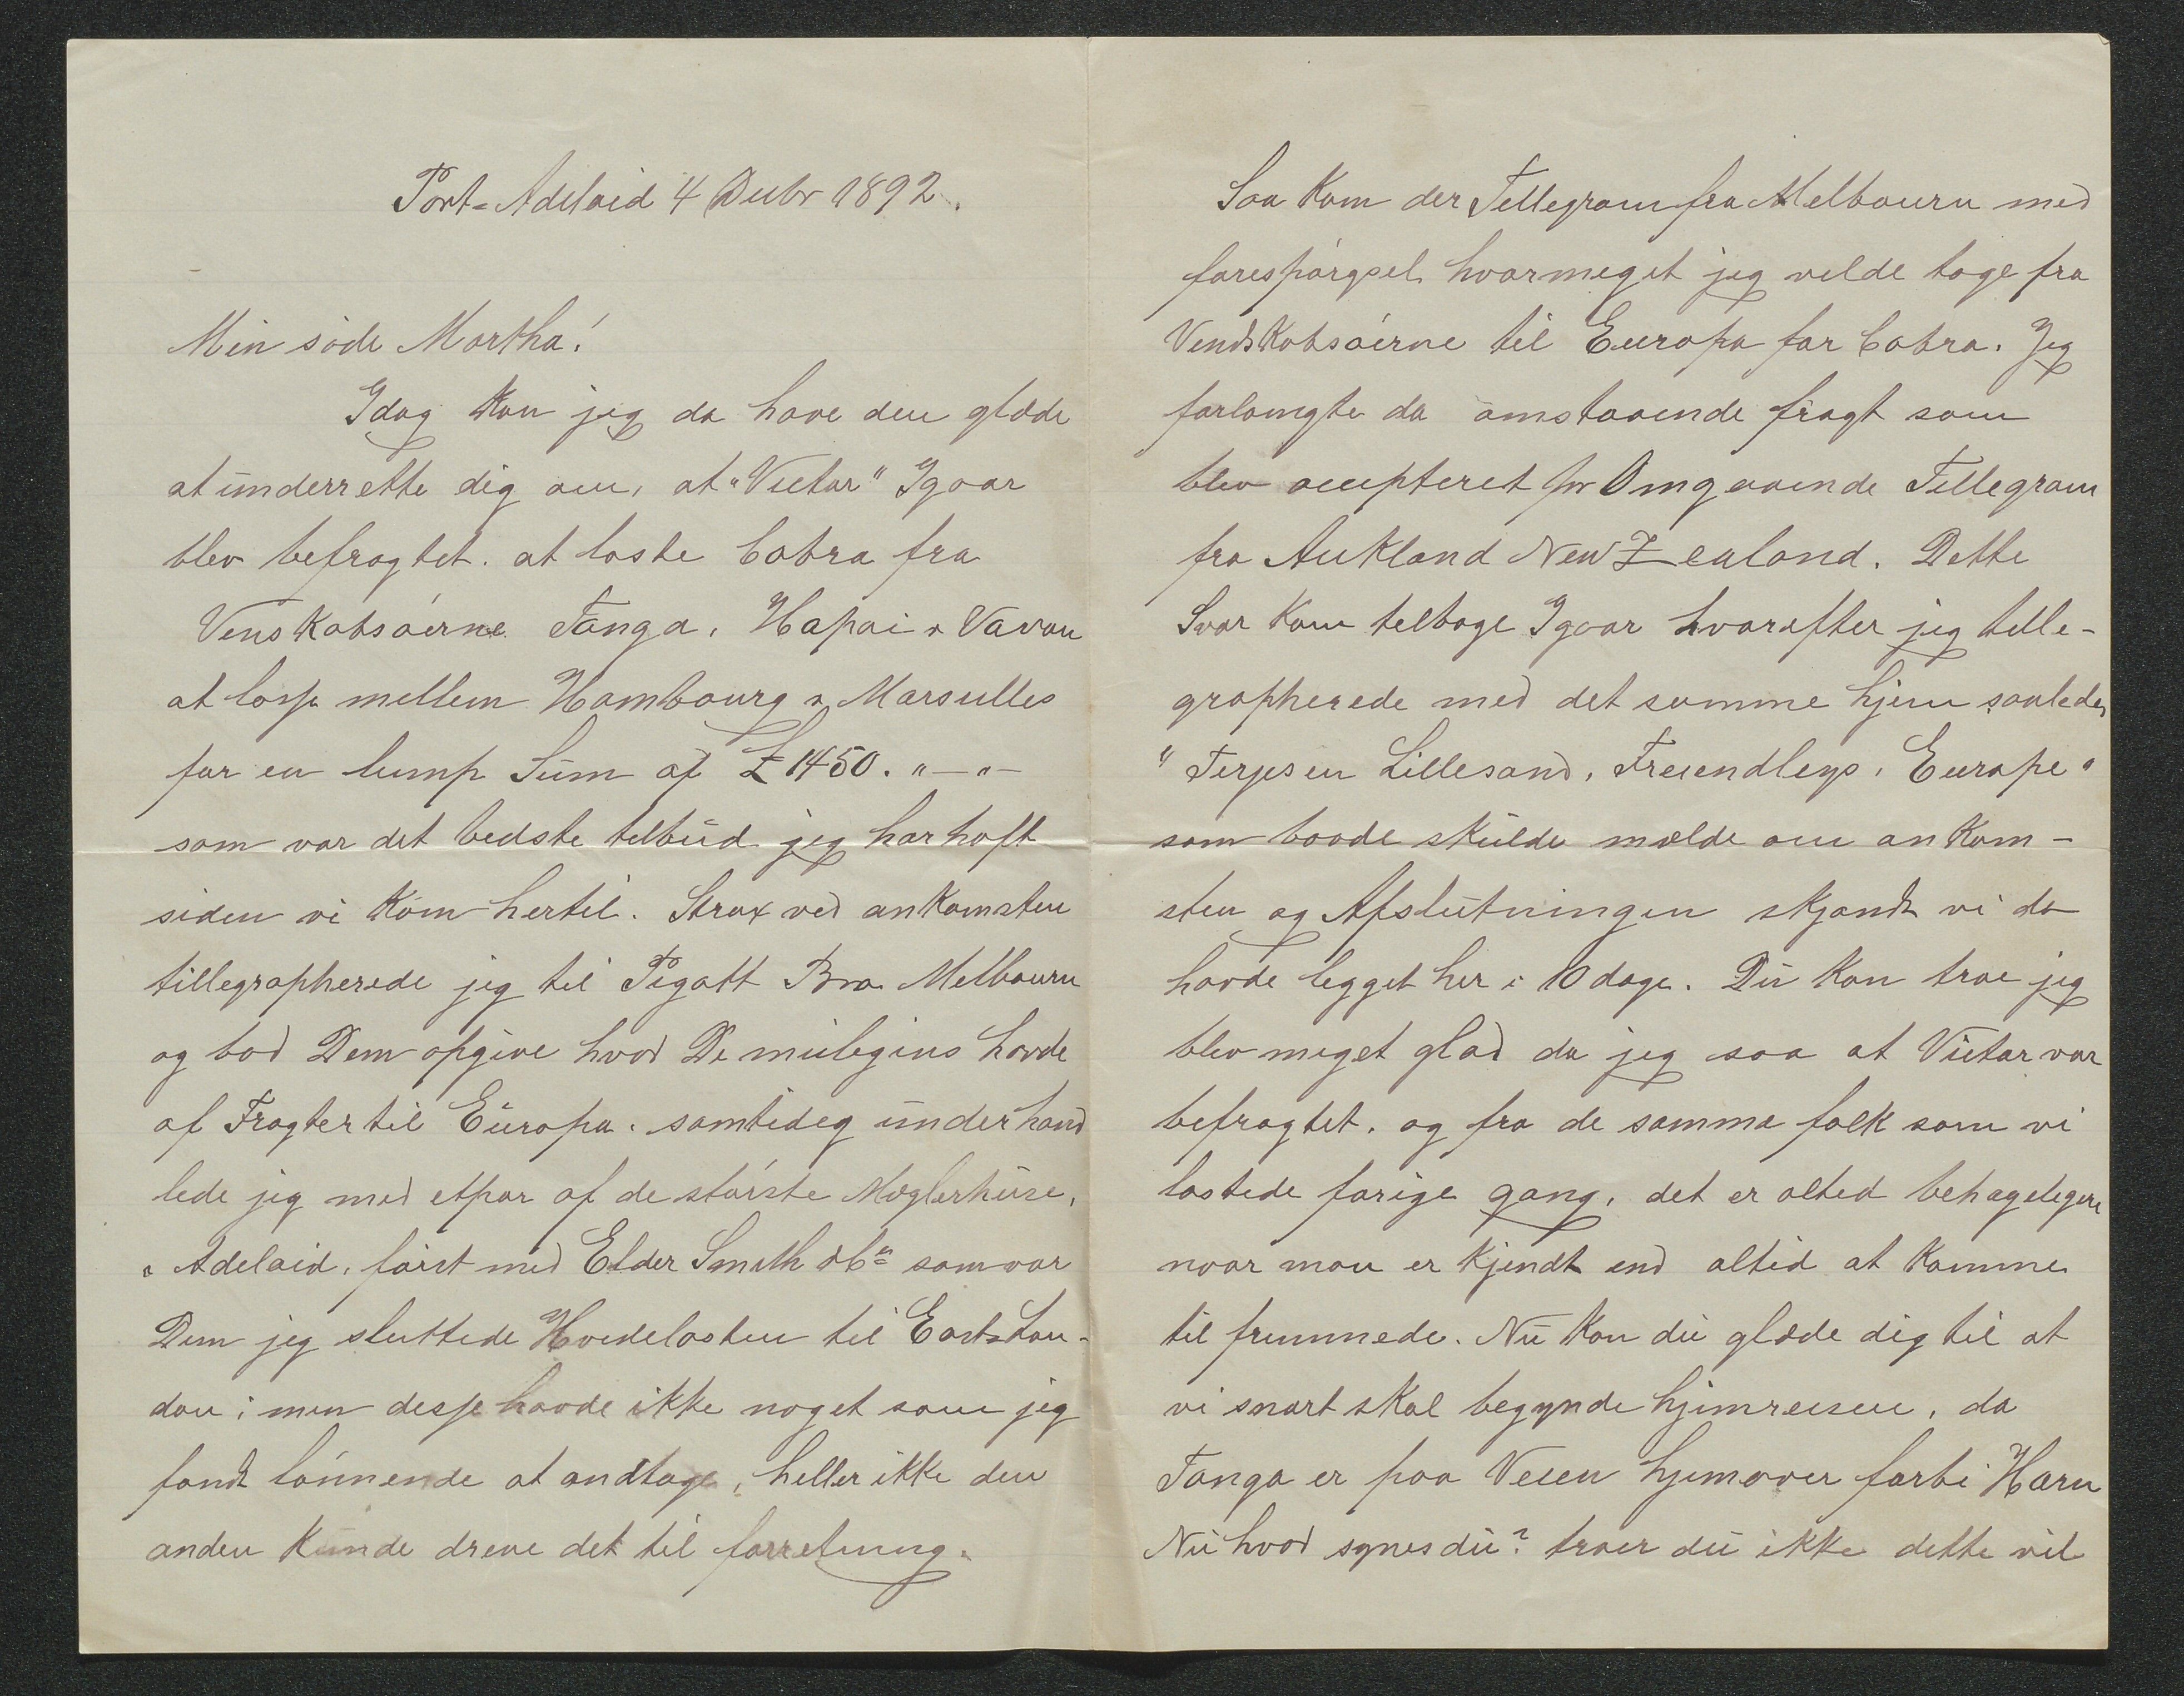 Port-Adelaid 4 Decbr 1892.
Min söde Martha!
Idag kan jeg da have den glæde
at underrette dig om, at "Victor" Igaar
blev befragtet. at laste Cobra fra
Venskabsöerne Tonga, Hapai & Vavau
at losse mellem Hambourg & Marseilles
for en lump Sum af £ 1450. "—"—
som var det bedste tilbud jeg har haft
siden vi kom hertil. Strax ved ankomsten
tillegrapherede jeg til Pigott Bro Melbourn
og bad Dem opgive hvad De muligens havde
af Fragter til Europa. samtidig underhand
lede jeg med etpar af de störste Mæglerhuse,
i Adelaid, först med Elder Smith & Co som var
Dem jeg sluttede Hvedelasten til East-Lon-
don; men desse havde ikke noget som jeg
fandt lönnende at andtage, heller ikke den
anden kunde dreve det til forretning.
Saa kom der Tellegram fra Melbourn med
forespörgsel hvormeget jeg vilde tage fra
Vendskabsöerne til Europa for Cobra. Jeg
forlangte da omstaaende fragt som
blev accepteret pr Omgaaende Tellegram
fra Aukland New Zealand. Dette
Svar kom tilbage Igaar hvorefter jeg telle-
grapherede med det samme hjem saaledes
"Terjesen Lillesand, Freiendleys, Europe"
som baade skulde melde om ankom-
sten og Afslutningen skjöndt vi da
havde legget her i 10 dage. Du kan troe jeg
blev meget glad da jeg saa at Victor var
befragtet. og fra de samme folk som vi
lastede forige gang, det er altid behageligere
naar man er kjendt end altid at komme
til fremmede. Nu kan du glæde dig til at
vi snart skal begynde hjemreisen, da
Tonga er paa Veien hjemover forbi Horn
Nu hvad synes du? troer du ikke dette vil